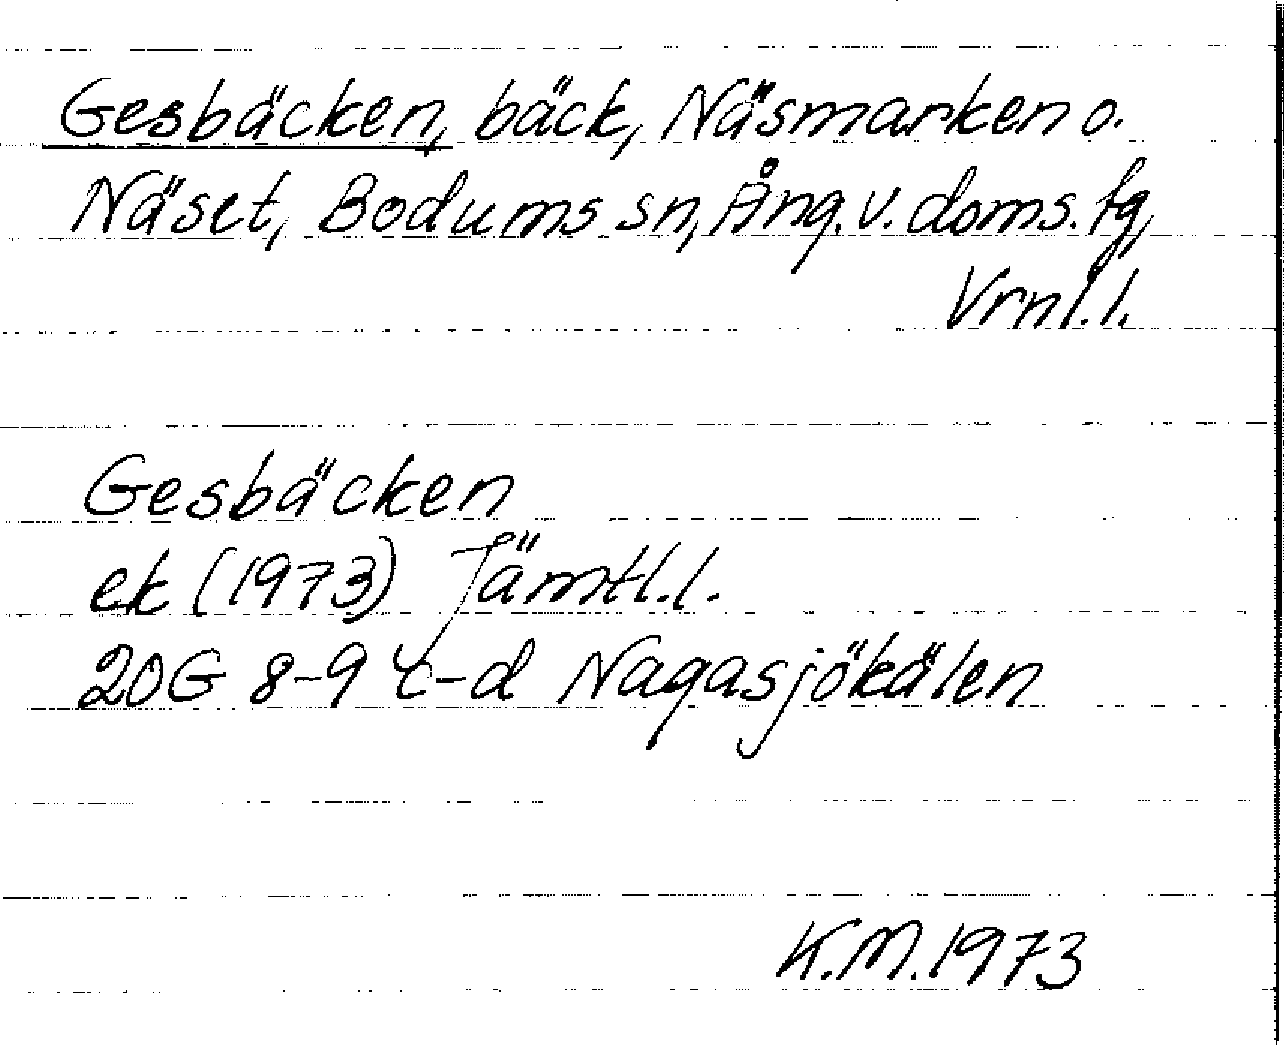 Gesbäcken, bäck, Näsmarken o.
Näset, Bodums sn, Ång. v. doms. fg,
Vrnl. l.
Gesbäcken
ek (1973) Jämtl. l.
20G 8-9 c-d Nagasjökälen
K.M. 1973